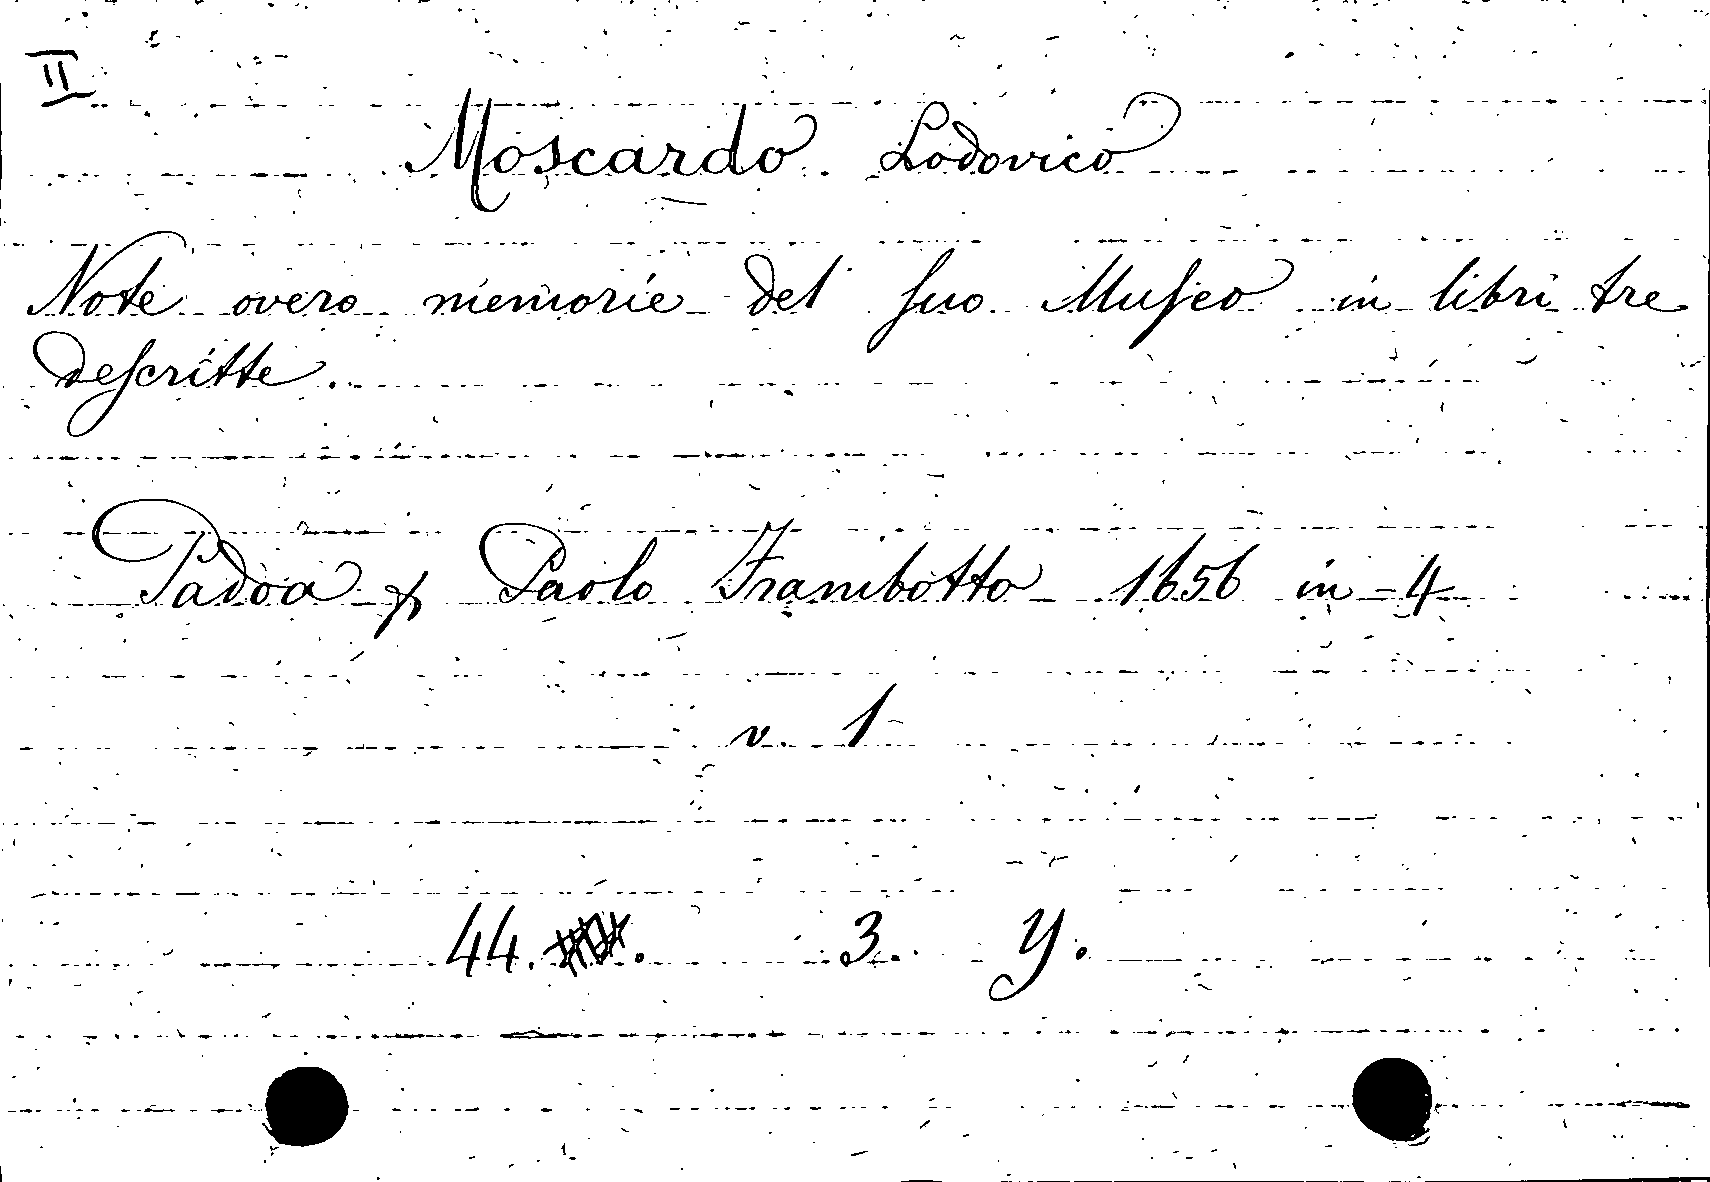 II
Moscardo Lodovico
Note overo memorie del suo Museo in libri tre
descritte.
Padoa p Paolo Frambotto 1656 in-4
v. 1
44. 3. Y.